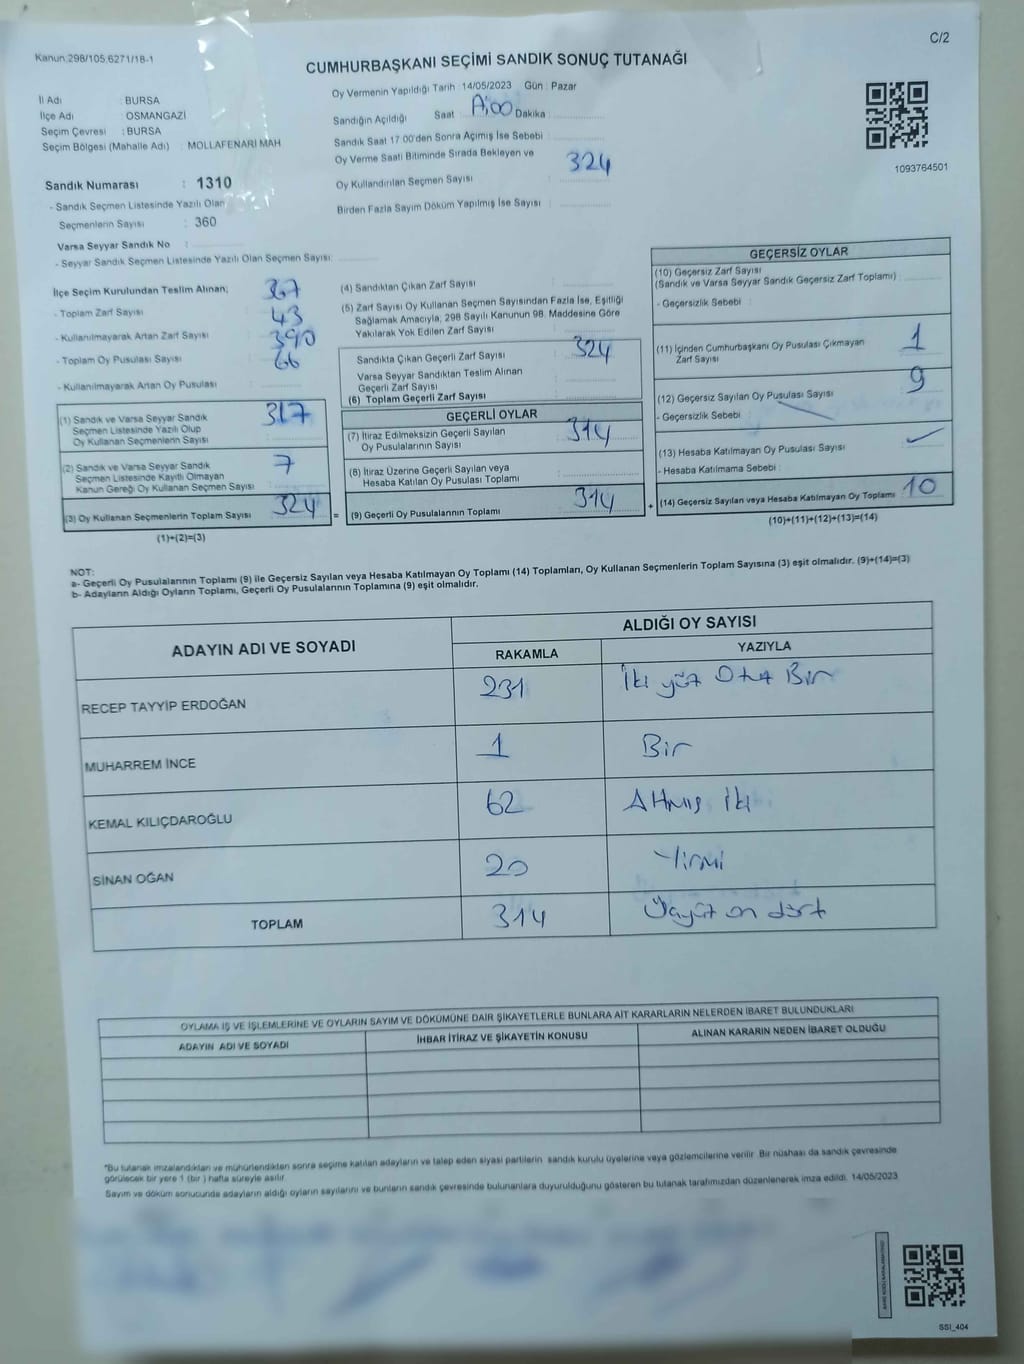 Kanun:298/105,6271/18-1
C/2
CUMHURBAŞKANI SEÇİMİ SANDIK SONUÇ TUTANAĞI
Oy Vermenin Yapıldığı Tarih : 14/05/2023 Gün : Pazar
İl Adı : BURSA
İlçe Adı : OSMANGAZİ
Seçim Çevresi : BURSA
Seçim Bölgesi (Mahalle Adı) : MOLLAFENARİ MAH
Sandık Numarası : 1310
- Sandık Seçmen Listesinde Yazılı Olan
Seçmenlerin Sayısı : 360
Varsa Seyyar Sandık No :
- Seyyar Sandık Seçmen Listesinde Yazılı Olan Seçmen Sayısı:
Sandığın Açıldığı Saat Dakika :
Sandık Saat 17:00'den Sonra Açılmış İse Sebebi :
Oy Verme Saati Bitiminde Sırada Bekleyen ve
Oy Kullandırılan Seçmen Sayısı : 324
Birden Fazla Sayım Döküm Yapılmış İse Sayısı :
1093764501
İlçe Seçim Kurulundan Teslim Alınan;
- Toplam Zarf Sayısı : 367
- Kullanılmayarak Artan Zarf Sayısı : 43
- Toplam Oy Pusulası Sayısı : 390
- Kullanılmayarak Artan Oy Pusulası : 66
(1) Sandık ve Varsa Seyyar Sandık
Seçmen Listesinde Yazılı Olup
Oy Kullanan Seçmenlerin Sayısı : 317
(2) Sandık ve Varsa Seyyar Sandık
Seçmen Listesinde Kayıtlı Olmayan
Kanun Gereği Oy Kullanan Seçmen Sayısı : 7
(3) Oy Kullanan Seçmenlerin Toplam Sayısı 324
(1)+(2)=(3)
(4) Sandıktan Çıkan Zarf Sayısı :
(5) Zarf Sayısı Oy Kullanan Seçmen Sayısından Fazla İse, Eşitliği
Sağlamak Amacıyla, 298 Sayılı Kanunun 98. Maddesine Göre
Yakılarak Yok Edilen Zarf Sayısı :
Sandıkta Çıkan Geçerli Zarf Sayısı : 324
Varsa Seyyar Sandıktan Teslim Alınan
Geçerli Zarf Sayısı :
(6) Toplam Geçerli Zarf Sayısı :
GEÇERLİ OYLAR
(7) İtiraz Edilmeksizin Geçerli Sayılan
Oy Pusulalarının Sayısı : 314
(8) İtiraz Üzerine Geçerli Sayılan veya
Hesaba Katılan Oy Pusulası Toplamı :
= (9) Geçerli Oy Pusulalarının Toplamı : 314
GEÇERSİZ OYLAR
(10) Geçersiz Zarf Sayısı
(Sandık ve Varsa Seyyar Sandık Geçersiz Zarf Toplamı) :
- Geçersizlik Sebebi :
(11) İçinden Cumhurbaşkanı Oy Pusulası Çıkmayan
Zarf Sayısı : 1
(12) Geçersiz Sayılan Oy Pusulası Sayısı : 9
- Geçersizlik Sebebi :
(13) Hesaba Katılmayan Oy Pusulası Sayısı :
- Hesaba Katılmama Sebebi :
+ (14) Geçersiz Sayılan veya Hesaba Katılmayan Oy Toplamı : 10
(10)+(11)+(12)+(13)=(14)
NOT:
a- Geçerli Oy Pusulalarının Toplamı (9) ile Geçersiz Sayılan veya Hesaba Katılmayan Oy Toplamı (14) Toplamları, Oy Kullanan Seçmenlerin Toplam Sayısına (3) eşit olmalıdır. (9)+(14)=(3)
b- Adayların Aldığı Oyların Toplamı, Geçerli Oy Pusulalarının Toplamına (9) eşit olmalıdır.
ADAYIN ADI VE SOYADI ALDIĞI OY SAYISI
RAKAMLA YAZIYLA
RECEP TAYYİP ERDOĞAN 231 İki yüz Otuz Bir
MUHARREM İNCE 1 Bir
KEMAL KILIÇDAROĞLU 62 Altmış iki
SİNAN OĞAN 20 Yirmi
TOPLAM 314 Üçyüz on dört
OYLAMA İŞ VE İŞLEMLERİNE VE OYLARIN SAYIM VE DÖKÜMÜNE DAİR ŞİKAYETLERLE BUNLARA AİT KARARLARIN NELERDEN İBARET BULUNDUKLARI
ADAYIN ADI VE SOYADI İHBAR İTİRAZ VE ŞİKAYETİN KONUSU ALINAN KARARIN NEDEN İBARET OLDUĞU
*Bu tutanak imzalandıktan ve mühürlendikten sonra seçime katılan adayların ve talep eden siyasi partilerin sandık kurulu üyelerine veya gözlemcilerine verilir. Bir nüshası da sandık çevresinde
görülecek bir yere 1 (bir ) hafta süreyle asılır.
Sayım ve döküm sonucunda adayların aldığı oyların sayılarını ve bunların sandık çevresinde bulunanlara duyurulduğunu gösteren bu tutanak tarafımızdan düzenlenerek imza edildi. 14/05/2023
SSI_404